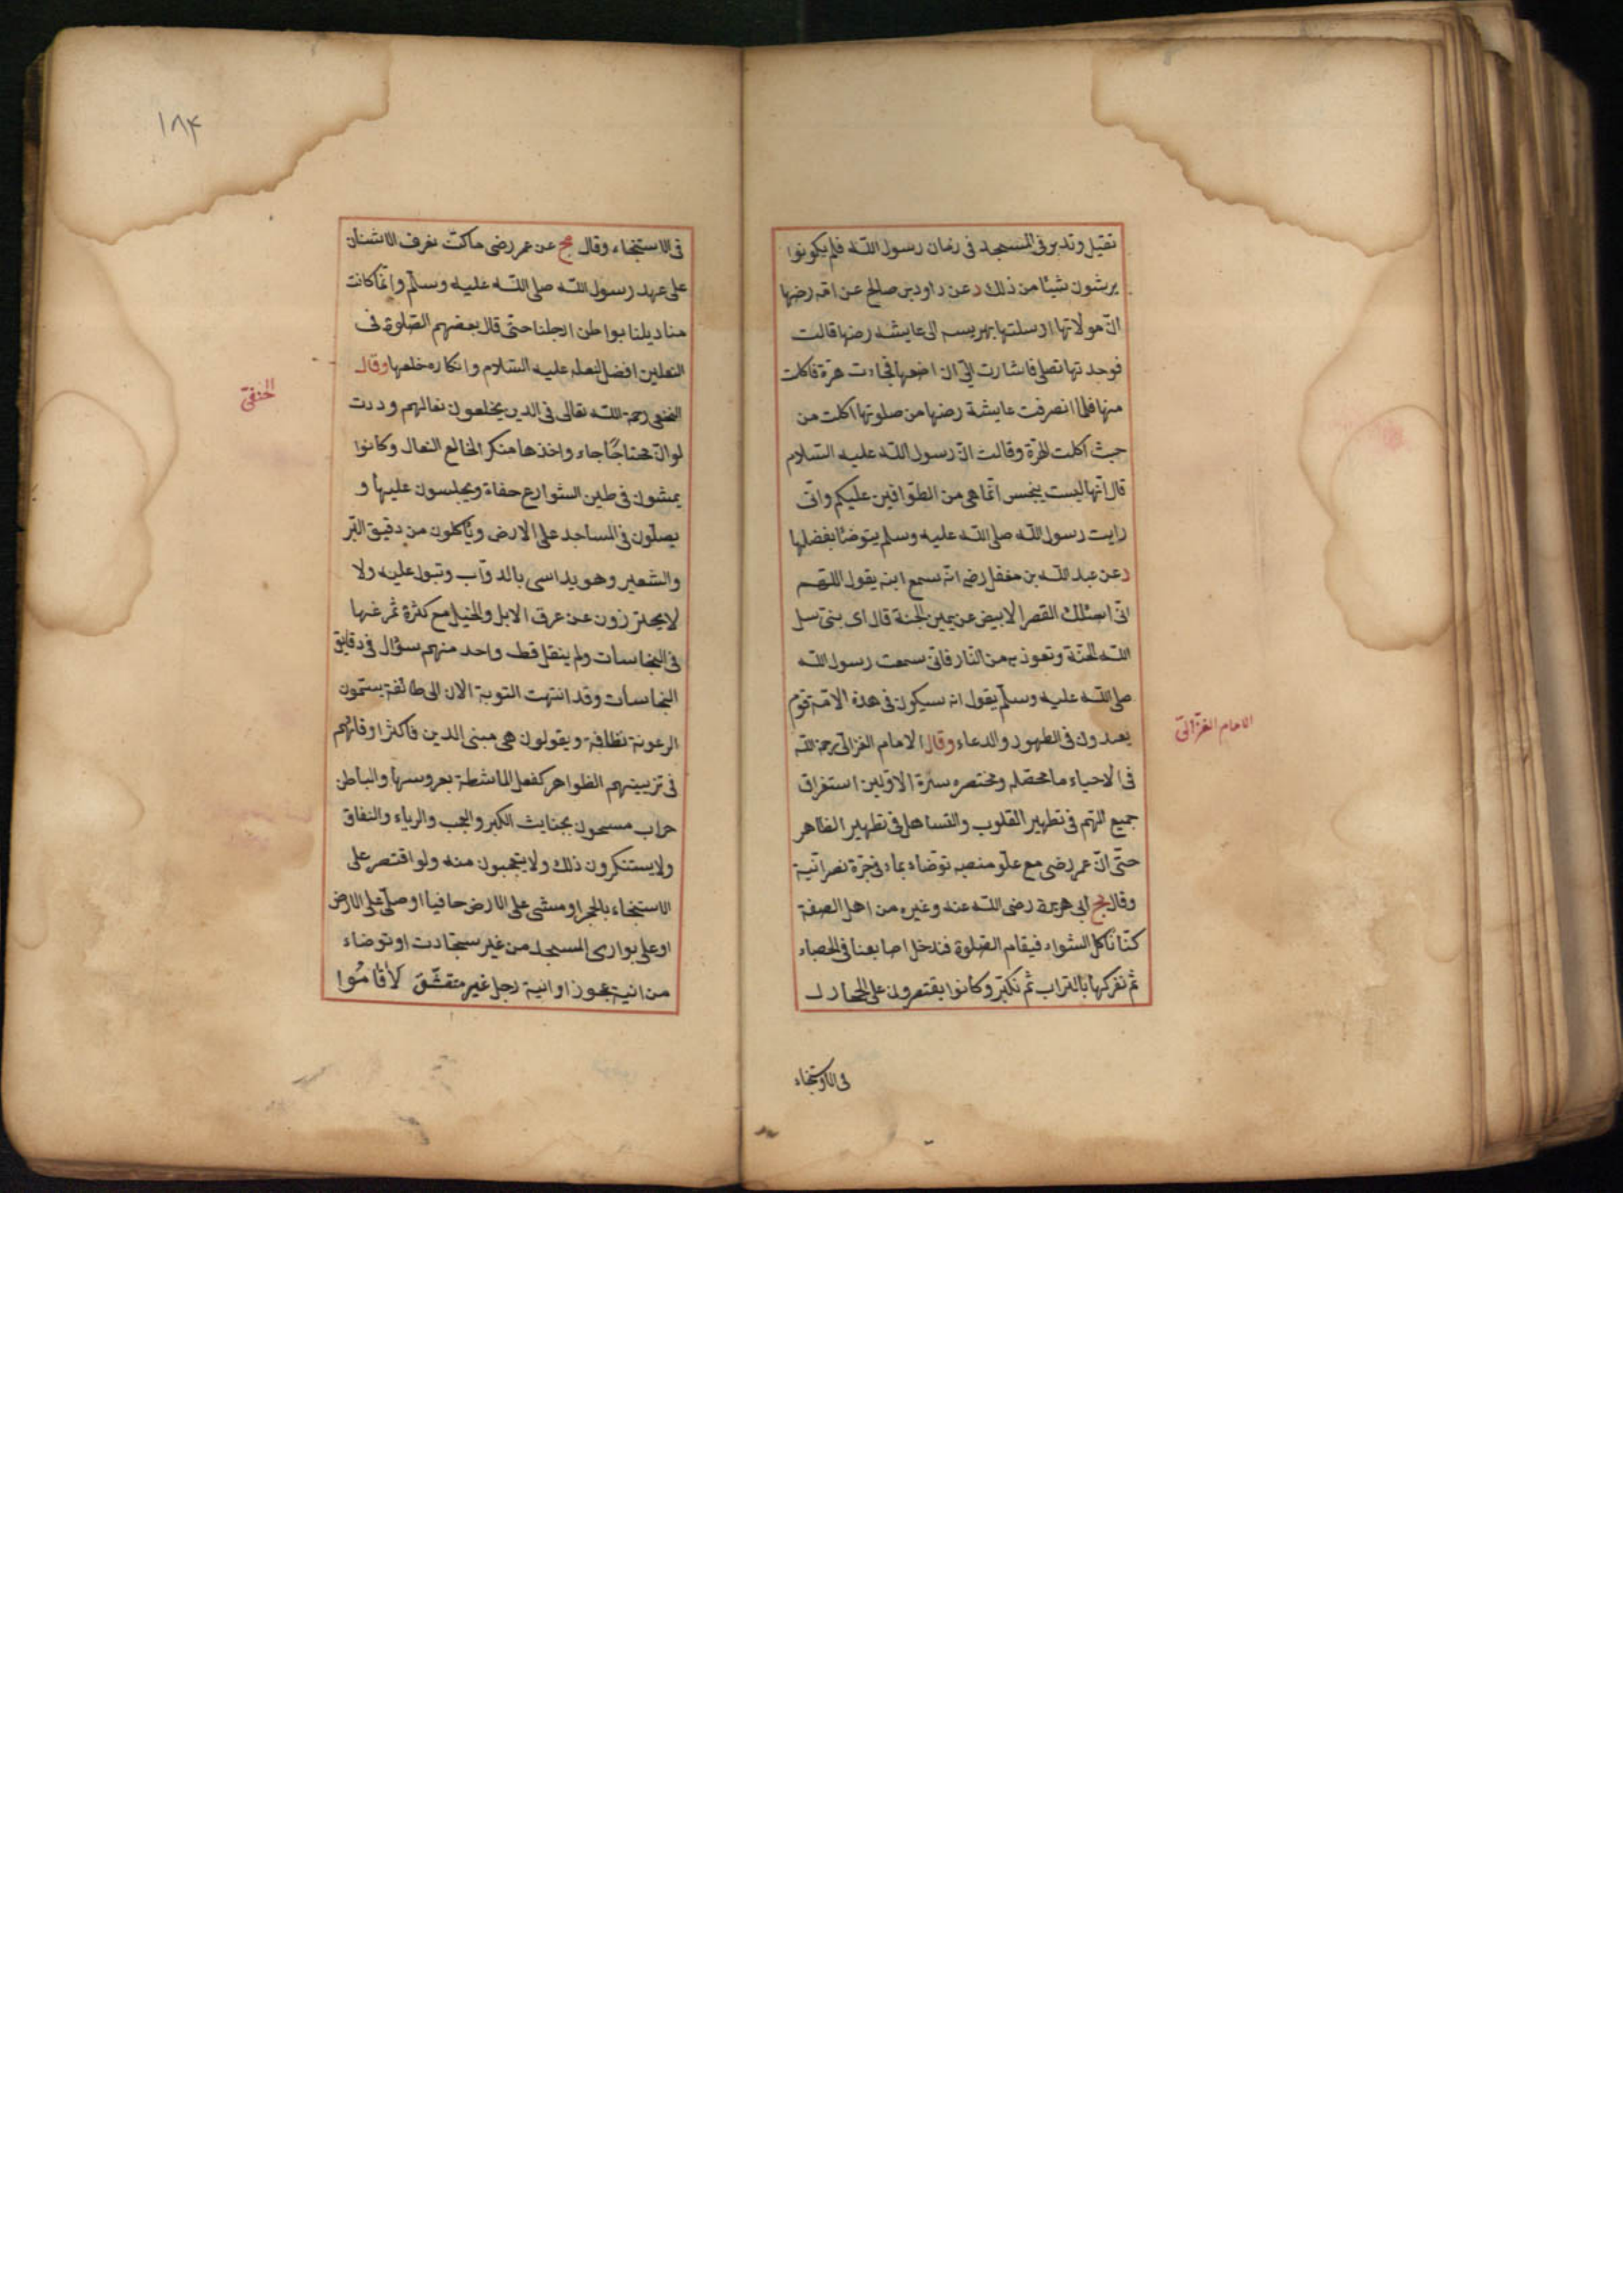 تقبل وتدبر فى المسجد فى زمان رسول الله فلم يكونوا
يرشون شيئا من ذلك د عن داود بن صالح عن امه رضها
ان مولاتها ارسلتها بهريسه الى عايشه رضها قالت
فوجدتها تصلى فاشارت الىّ ان اضعها فجاءت هرة فاكلت
منها فلما انصرفت عايشة رضها من صلوتها اكلت من
حيث اكلت الهرة وقالت انّ رسول الله عليه السلام
قال انها ليست بنجس انما هى من الطوافين عليكم وانى
رايت رسول الله صلى الله عليه وسلم يتوضأ بفضلها
د عن عبد الله بن مغفل رضى انه سمع ابنه يقول اللهم
انى اسئلك القصر الابيض عن يمين الجنة قال اى بنى سل
الله الجنة وتعوذ به من النار فانى سمعت رسول الله
صلى الله عليه وسلم يقول انه سيكون فى هذه الامة قوم
يعتدون فى الطهور والدعاء وقال الامام الغزالى رحمة الله
فى الاحياء ما محصله ومختصره سيرة الاولين استغراق
جميع الهم فى تطهير القلوب والتساهل فى تطهير الظاهر
حتى انّ عمر رضى مع علو منصبه توضاء بماء فى جرّة نصرانية
وقال مج ابى هريرة رضى الله عنه وغيره من اهل الصفة
كنا نأكل الشواء فيقام الصلوة فندخل اصابعنا فى الحصاء
ثم نفركها بالتراب ثم نكبّر وكانوا يقتصرون على الحجارة
فى الاستنجاء
الامام الغزالى
١٨٤
فى الاستنجاء وقال مج عن عمر رضى ما كنّا نعرف الاشنان
على عهد رسول الله صلى الله عليه وسلم وانما كانت
مناديلنا بواطن ارجلنا حتى قال بعضهم الصلوة فى
النعلين افضل لنعله عليه السلام وانكاره خلعها وقال
النخعى رحمة الله تعالى فى الذين يخلعون نعالهم وددت
لو انّ محتاجًا جاء واخذها منكر الخالع النعال وكانوا
يمشون فى طين الشوارع حفاة ويجلسون عليها و
يصلون فى المساجد على الارض ويأكلون من دقيق البر
والشعير وهو يداسى بالدوآب وتبول عليه ولا
لا يحترزون عن عرق الابل والخيل مع كثرة تمرغها
فى النجاسات ولم ينقل قط واحد منهم سؤال فى دقايق
النجاسات وقد انتهت النوبة الان الى طائفة يستمون
الرعونة نظافة ويقولون هى مبنى الدين فاكثر اوقاتهم
فى تزيينهم الظواهر كفعل الماشطة بعروسها والباطن
خراب مسحون بخبايث الكبر والعجب والرياء والنفاق
ولا يستنكرون ذلك ولا يتعجبون منه ولو اقتصر على
الاستنجاء بالحجر او مشى على الارض حافيا او صلّى على الارض
او على بوارى المسجد من غير سجادت او توضاء
من انية عجوز او انية رجل غير متقشّق لأقامُوا